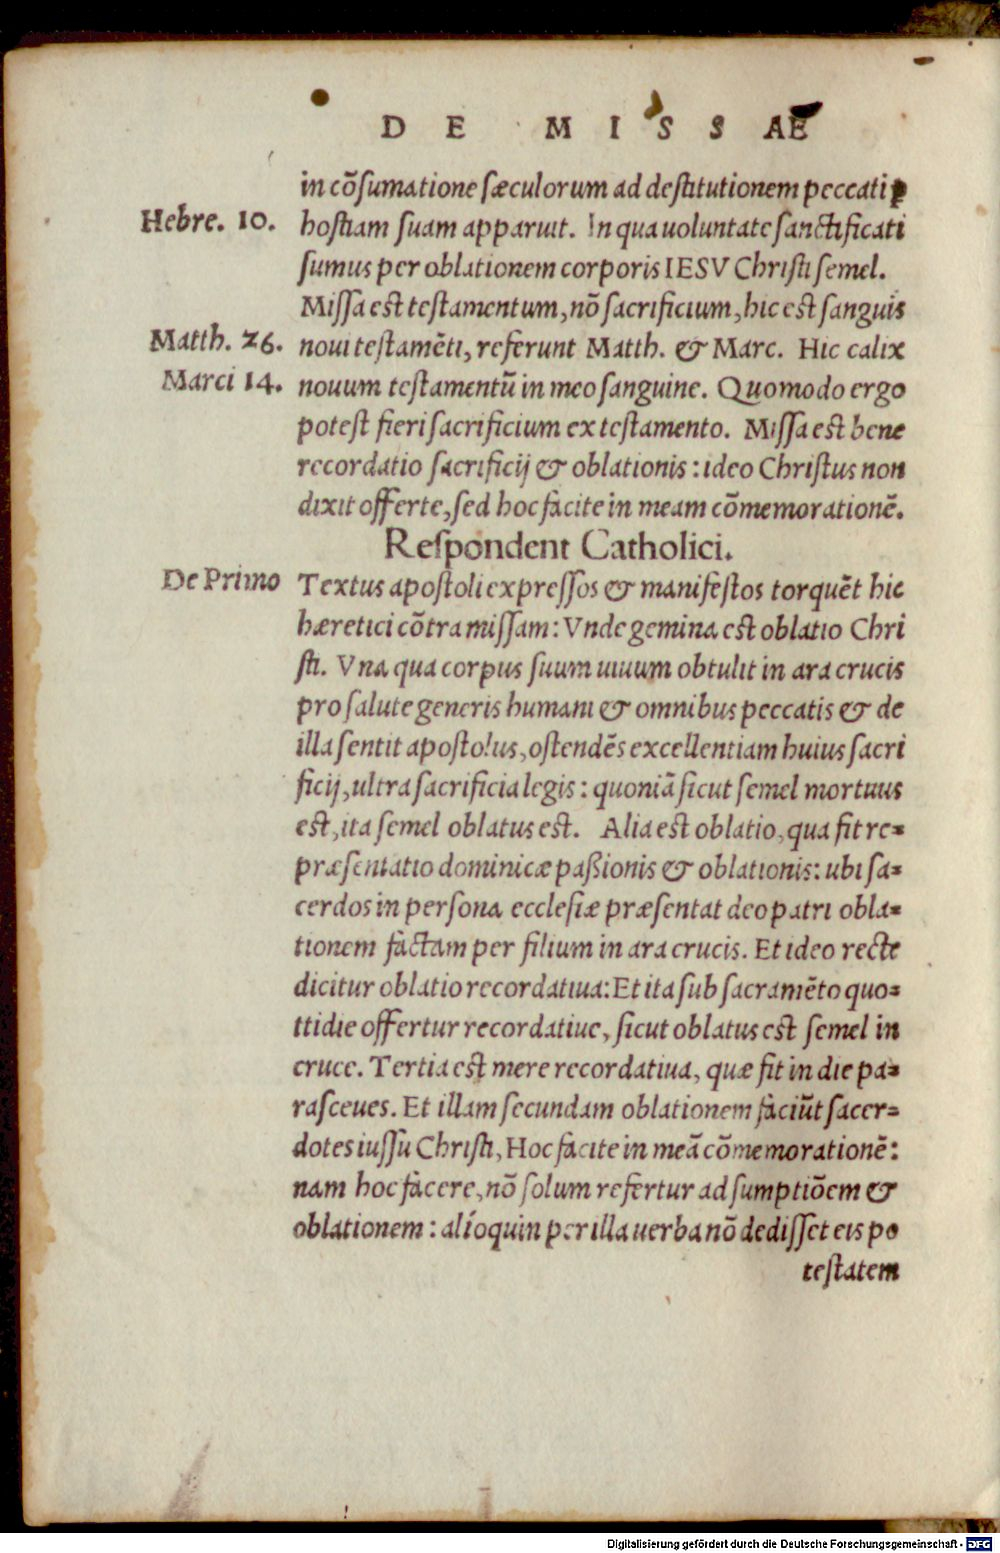 DE MISSAE
in cõsumatione sæculorum ad destitutionem peccati ꝑ
Hebre. 10. hostiam suam apparuit. In qua uoluntate sanctificati
sumus per oblationem corporis IESV Christi semel.
Missa est testamentum, nõ sacrificium, hic est sanguis
Matth. 26. noui testamẽti, referunt Matth. & Marc. Hic calix
Marci 14. nouum testamentũ in meo sanguine. Quomodo ergo
potest fieri sacrificium ex testamento. Missa est bene
recordatio sacrificij & oblationis: ideo Christus non
dixit offerte, sed hoc facite in meam cõmemorationẽ.
Respondent Catholici.
De Primo Textus apostoli expressos & manifestos torquẽt hic
hæretici cõtra missam: Vnde gemina est oblatio Chri
sti. Vna qua corpus suum uiuum obtulit in ara crucis
pro salute generis humani & omnibus peccatis & de
illa sentit apostolus, ostendẽs excellentiam huius sacri
ficij, ultra sacrificia legis: quoniã sicut semel mortuus
est, ita semel oblatus est. Alia est oblatio, qua fit re=
præsentatio dominicæ paßionis & oblationis: ubi sa=
cerdos in persona ecclesiæ præsentat deo patri obla=
tionem factam per filium in ara crucis. Et ideo recte
dicitur oblatio recordatiua: Et ita sub sacramẽto quo=
ttidie offertur recordatiue, sicut oblatus est semel in
cruce. Tertia est mere recordatiua, quæ fit in die pa=
rasceues. Et illam secundam oblationem faciũt sacer=
dotes iussu Christi, Hoc facite in meã cõmemorationẽ:
nam hoc facere, nõ solum refertur ad sumptiõem &
oblationem: alíoquin per illa uerba nõ dedisset eis po
testatem
Digitalisierung gefördert durch die Deutsche Forschungsgemeinschaft - DFG